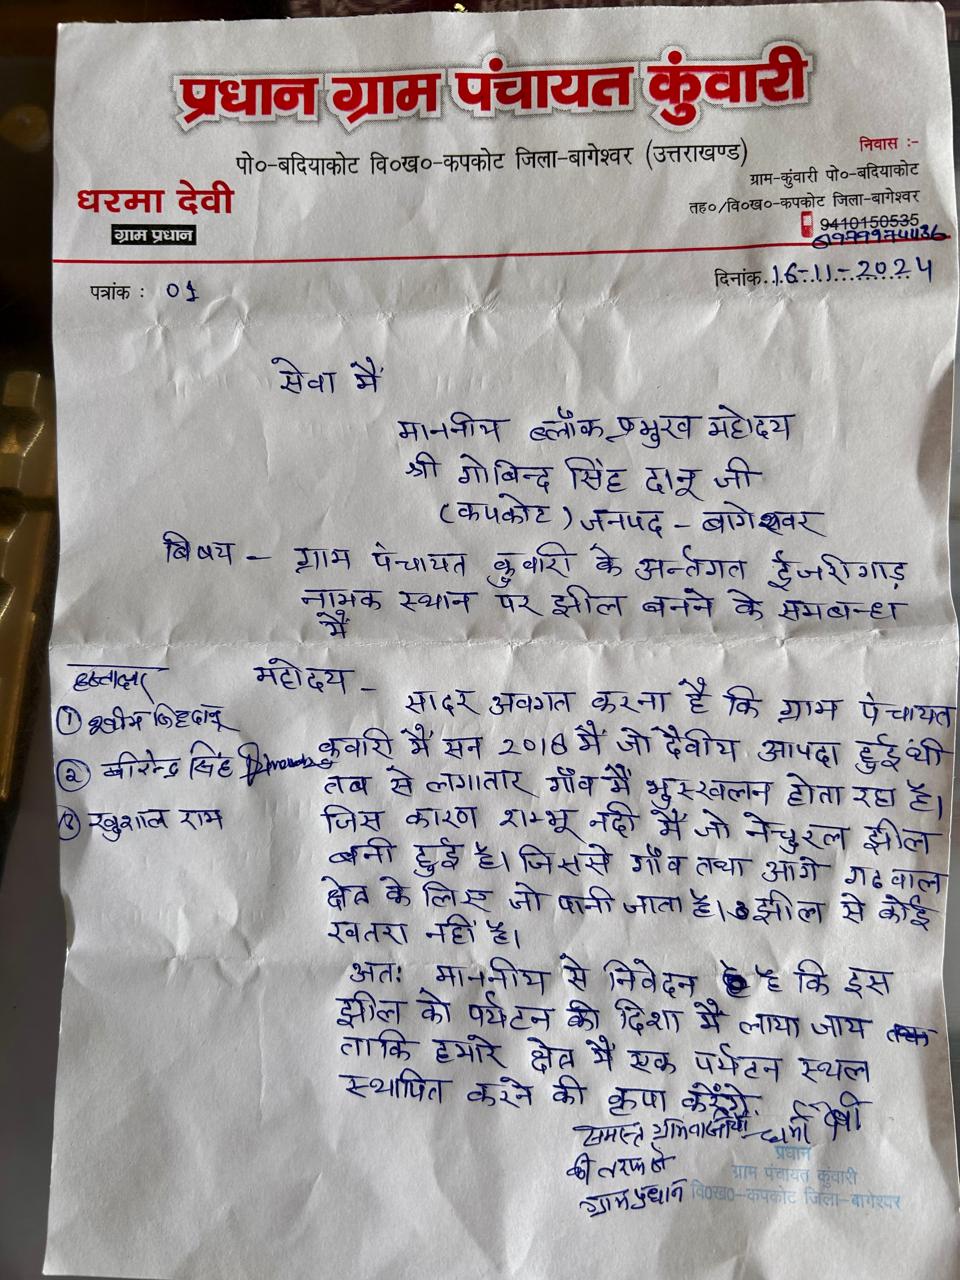 प्रधान ग्राम पंचायत कुंवारी
पो०-बदियाकोट वि०ख०-कपकोट जिला-बागेश्वर (उत्तराखण्ड)
धरमा देवी
ग्राम प्रधान
निवास :-
ग्राम-कुंवारी पो०-बदियाकोट
तह०/वि०ख०-कपकोट जिला-बागेश्वर
9410150535
पत्रांक : 01
दिनांक 16-11-2024
सेवा मैं
माननीय ब्लॉक प्रमुख महोदय
श्री गोबिन्द सिंह दानू जी
(कपकोट) जनपद - बागेश्वर
बिषय - ग्राम पंचायत कुवारी के अर्न्तगत ईजरीगाड़
नामक स्थान पर झील बनने के समबन्ध
मैं
महोदय -
सादर अवगत करना है कि ग्राम पंचायत
कुवारी मैं सन 2018 मैं जो दैवीय आपदा हुई थी
तब से लगातार गाँव मैं भुस्खलन होता रहा है।
जिस कारण शम्भू नदी मैं जो नेचुरल झील
बनी हुई है। जिससे गाँव तथा आगे गढवाल
क्षेत्र के लिए जो पानी जाता है। झील से कोई
खतरा नहीं है।
अतः माननीय से निवेदन है कि इस
झील को पर्यटन की दिशा मैं लाया जाय
ताकि हमारे क्षेत्र मैं एक पर्यटन स्थल
स्थापित करने की कृपा करेंगे।
हस्ताक्षर
① खीम सिंह दानू
② बीरेन्द्र सिंह
③ खुशाल राम
समस्त ग्रामवासीयों
की तरफ से
ग्राम प्रधान
धर्मा देवी
प्रधान
ग्राम पंचायत कुंवारी
वि०ख०-कपकोट जिला-बागेश्वर